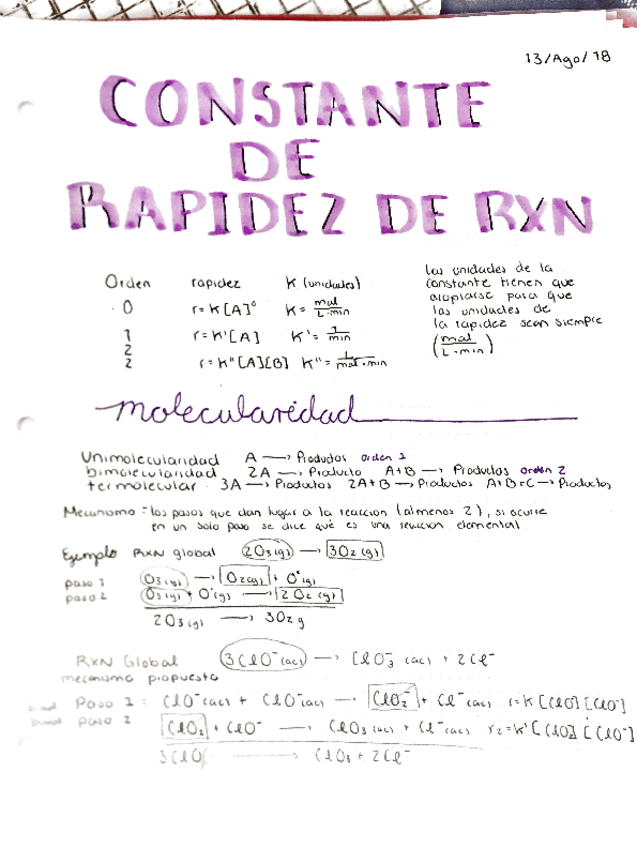 13/Ago/18
CONSTANTE
DE
RAPIDEZ DE RXN
Orden rapidez K (unidades)
0 r=K[A]⁰ K = mol/L·min
1 r=K'[A] K' = 1/min
2
2 r=K"[A][B] K" = L/mol·min
las unidades de la
constante tienen que
acoplarse para que
las unidades de
la rapidez sean siempre
(mol/L·min)
molecularidad
Unimolecularidad A → Productos orden 1
bimolecularidad 2A → Producto A+B → Productos orden 2
termolecular 3A → Productos 2A+B → Productos A+B+C → Productos
Mecanismo = los pasos que dan lugar a la reacción (al menos 2), si ocurre
en un solo paso se dice que es una reacción elemental
Ejemplo RXN global 2O₃(g) → 3O₂(g)
paso 1 O₃(g) → O₂(g) + O°(g)
paso 2 O₃(g) + O°(g) → 2O₂(g)
2O₃(g) → 3O₂ g
RXN Global 3ClO⁻(ac) → ClO₃⁻ (ac) + 2Cl⁻
mecanismo propuesto
Paso 1: ClO⁻(ac) + ClO⁻(ac) → ClO₂⁻ + Cl⁻(ac) r=K[ClO⁻][ClO⁻]
paso 2 ClO₂ + ClO⁻ → ClO₃(ac) + Cl⁻(ac) r₂=K'[ClO₂][ClO⁻]
3ClO → ClO₃ + 2Cl⁻